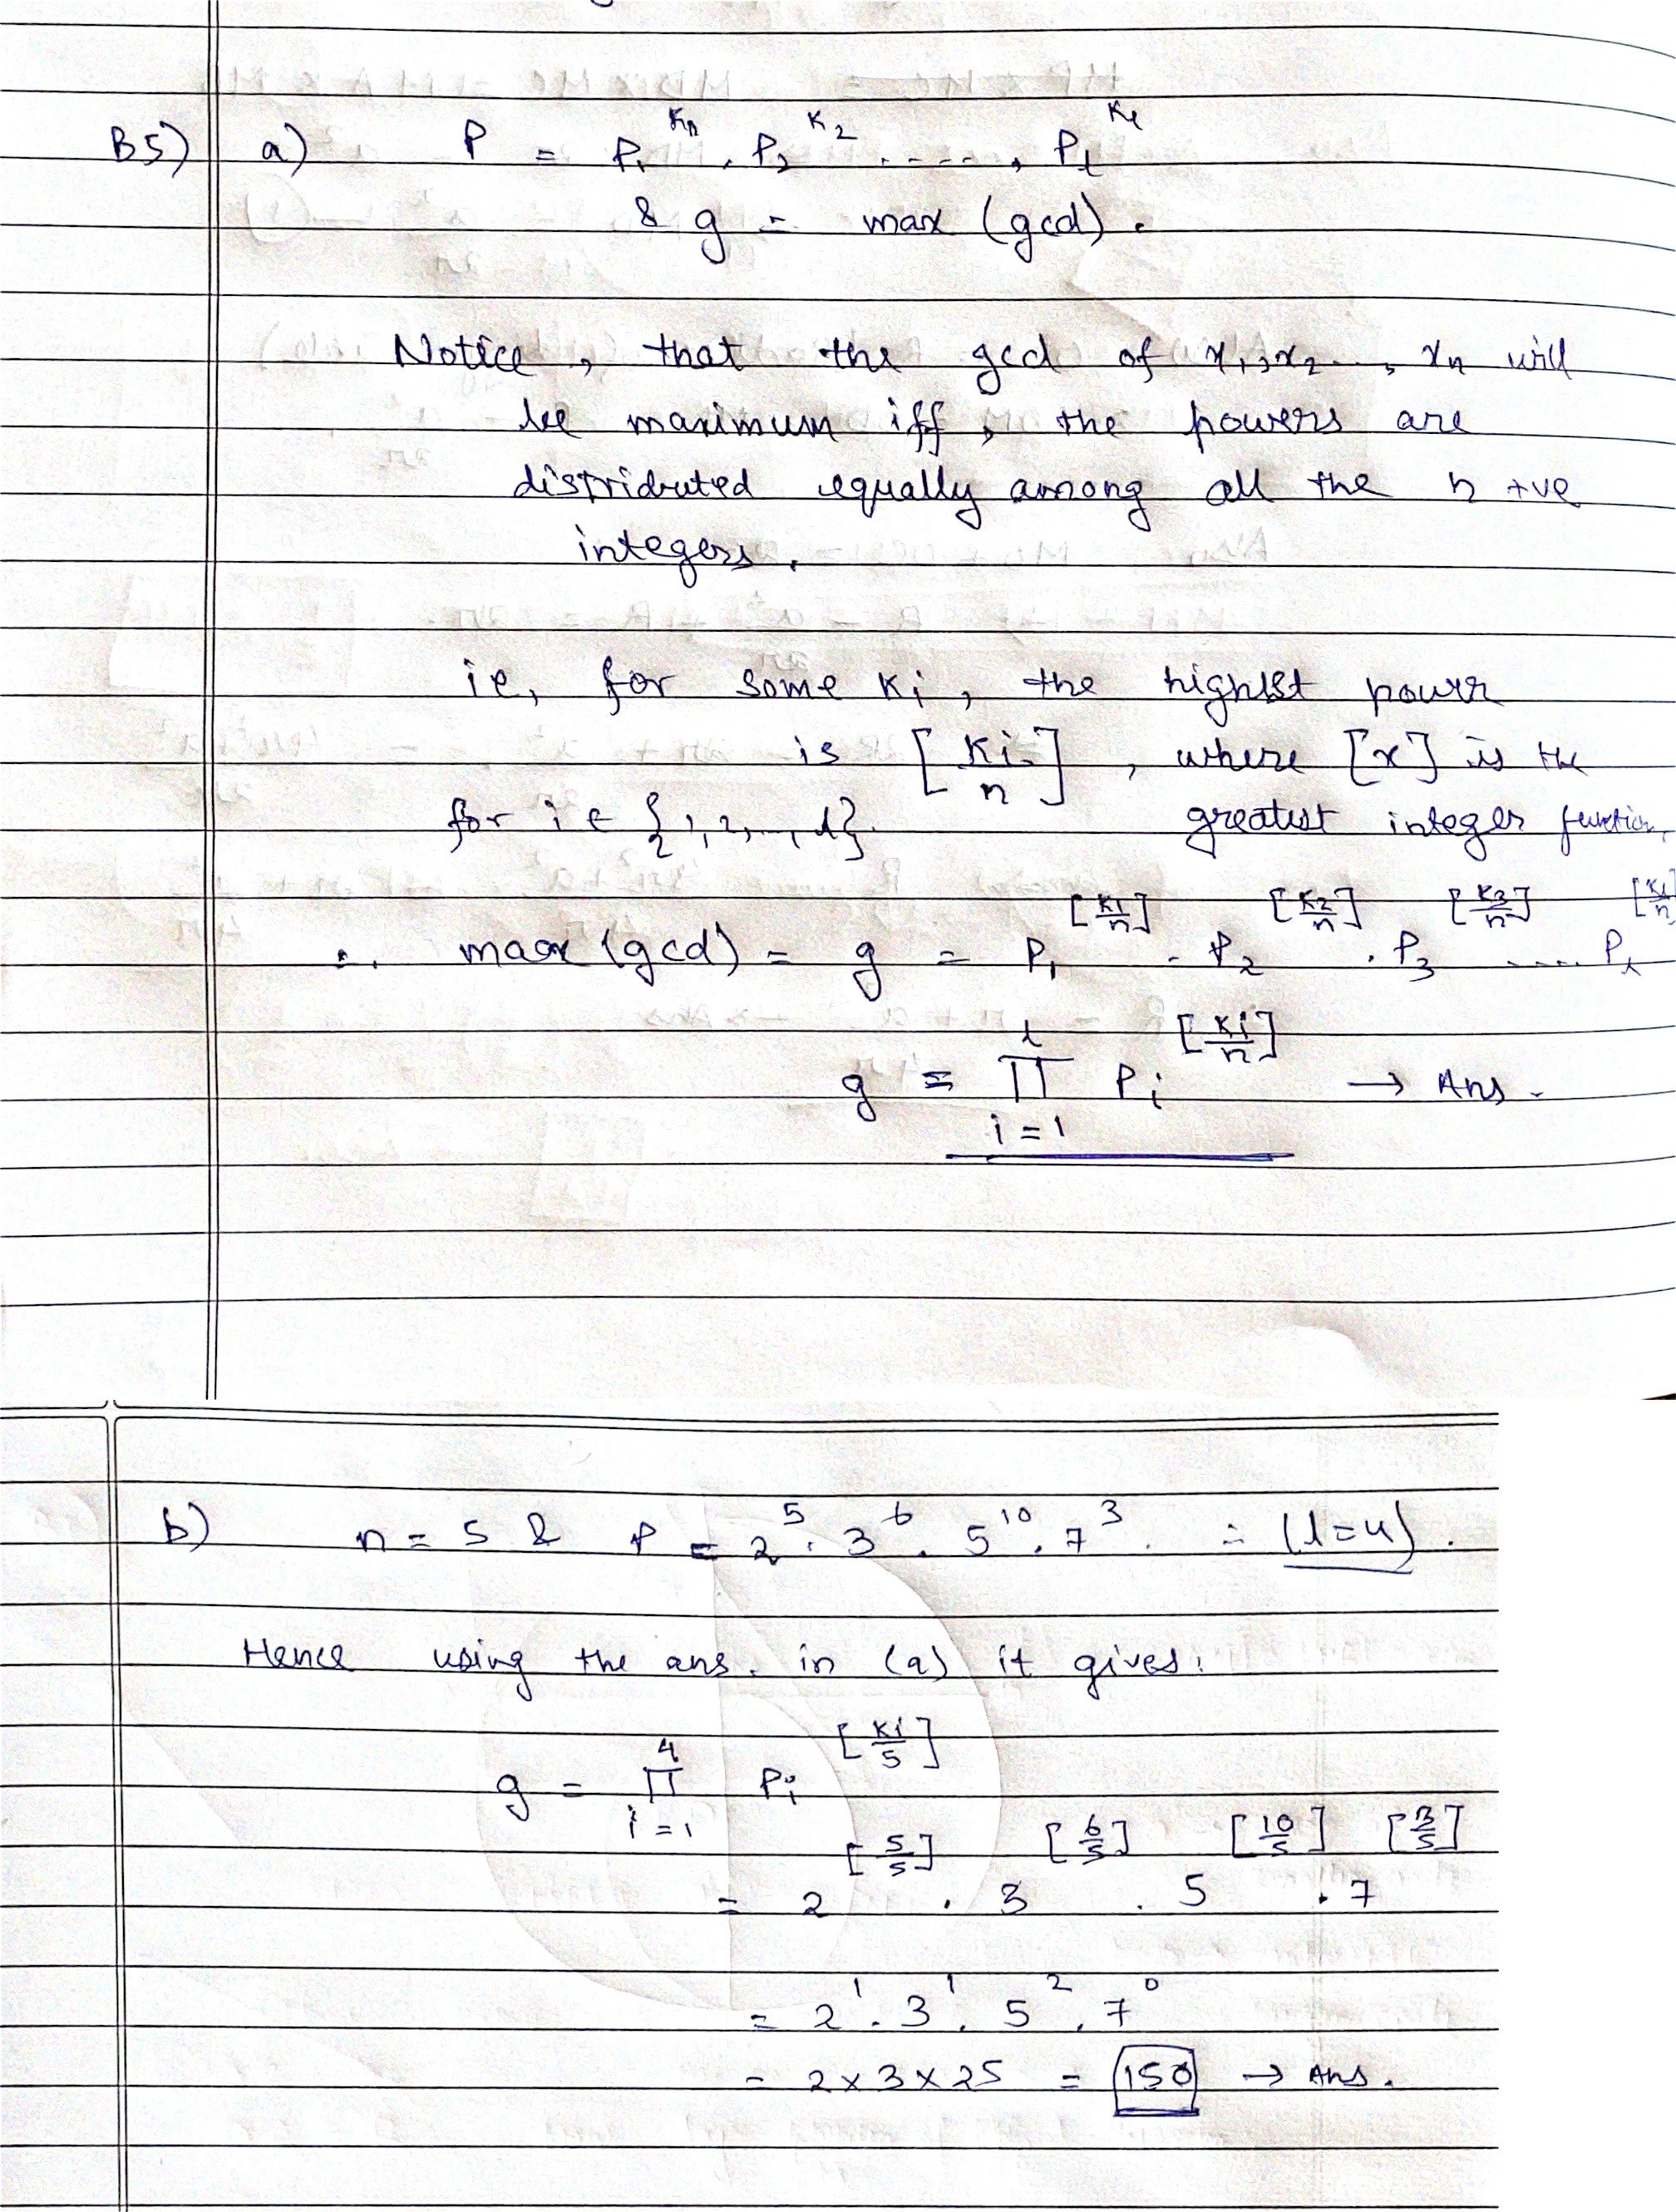 B5) a) P = P₁^K₁ . P₂^K₂ ....., P_l^K_l
& g = max (gcd).
Notice, that the gcd of x₁,x₂..., xₙ will
be maximum iff, the powers are
distributed equally among all the n +ve
integers.
ie, for some Ki, the highest power
is [Ki/n], where [x] is the
for i ∈ {1,2,..,l}. greatest integer function.
∴ max (gcd) = g = P₁^[K₁/n] . P₂^[K₂/n] . P₃^[K₃/n] .... P_l^[K_l/n]
g = ∏_{i=1}^{l} Pi^[Ki/n] → Ans.
b) n = 5 & P = 2^5 . 3^6 . 5^10 . 7^3 . ∴ (l=4).
Hence using the ans. in (a) it gives:
g = ∏_{i=1}^{4} Pi^[Ki/5]
= 2^[5/5] . 3^[6/5] . 5^[10/5] . 7^[3/5]
= 2^1 . 3^1 . 5^2 . 7^0
= 2 x 3 x 25 = 150 → Ans.